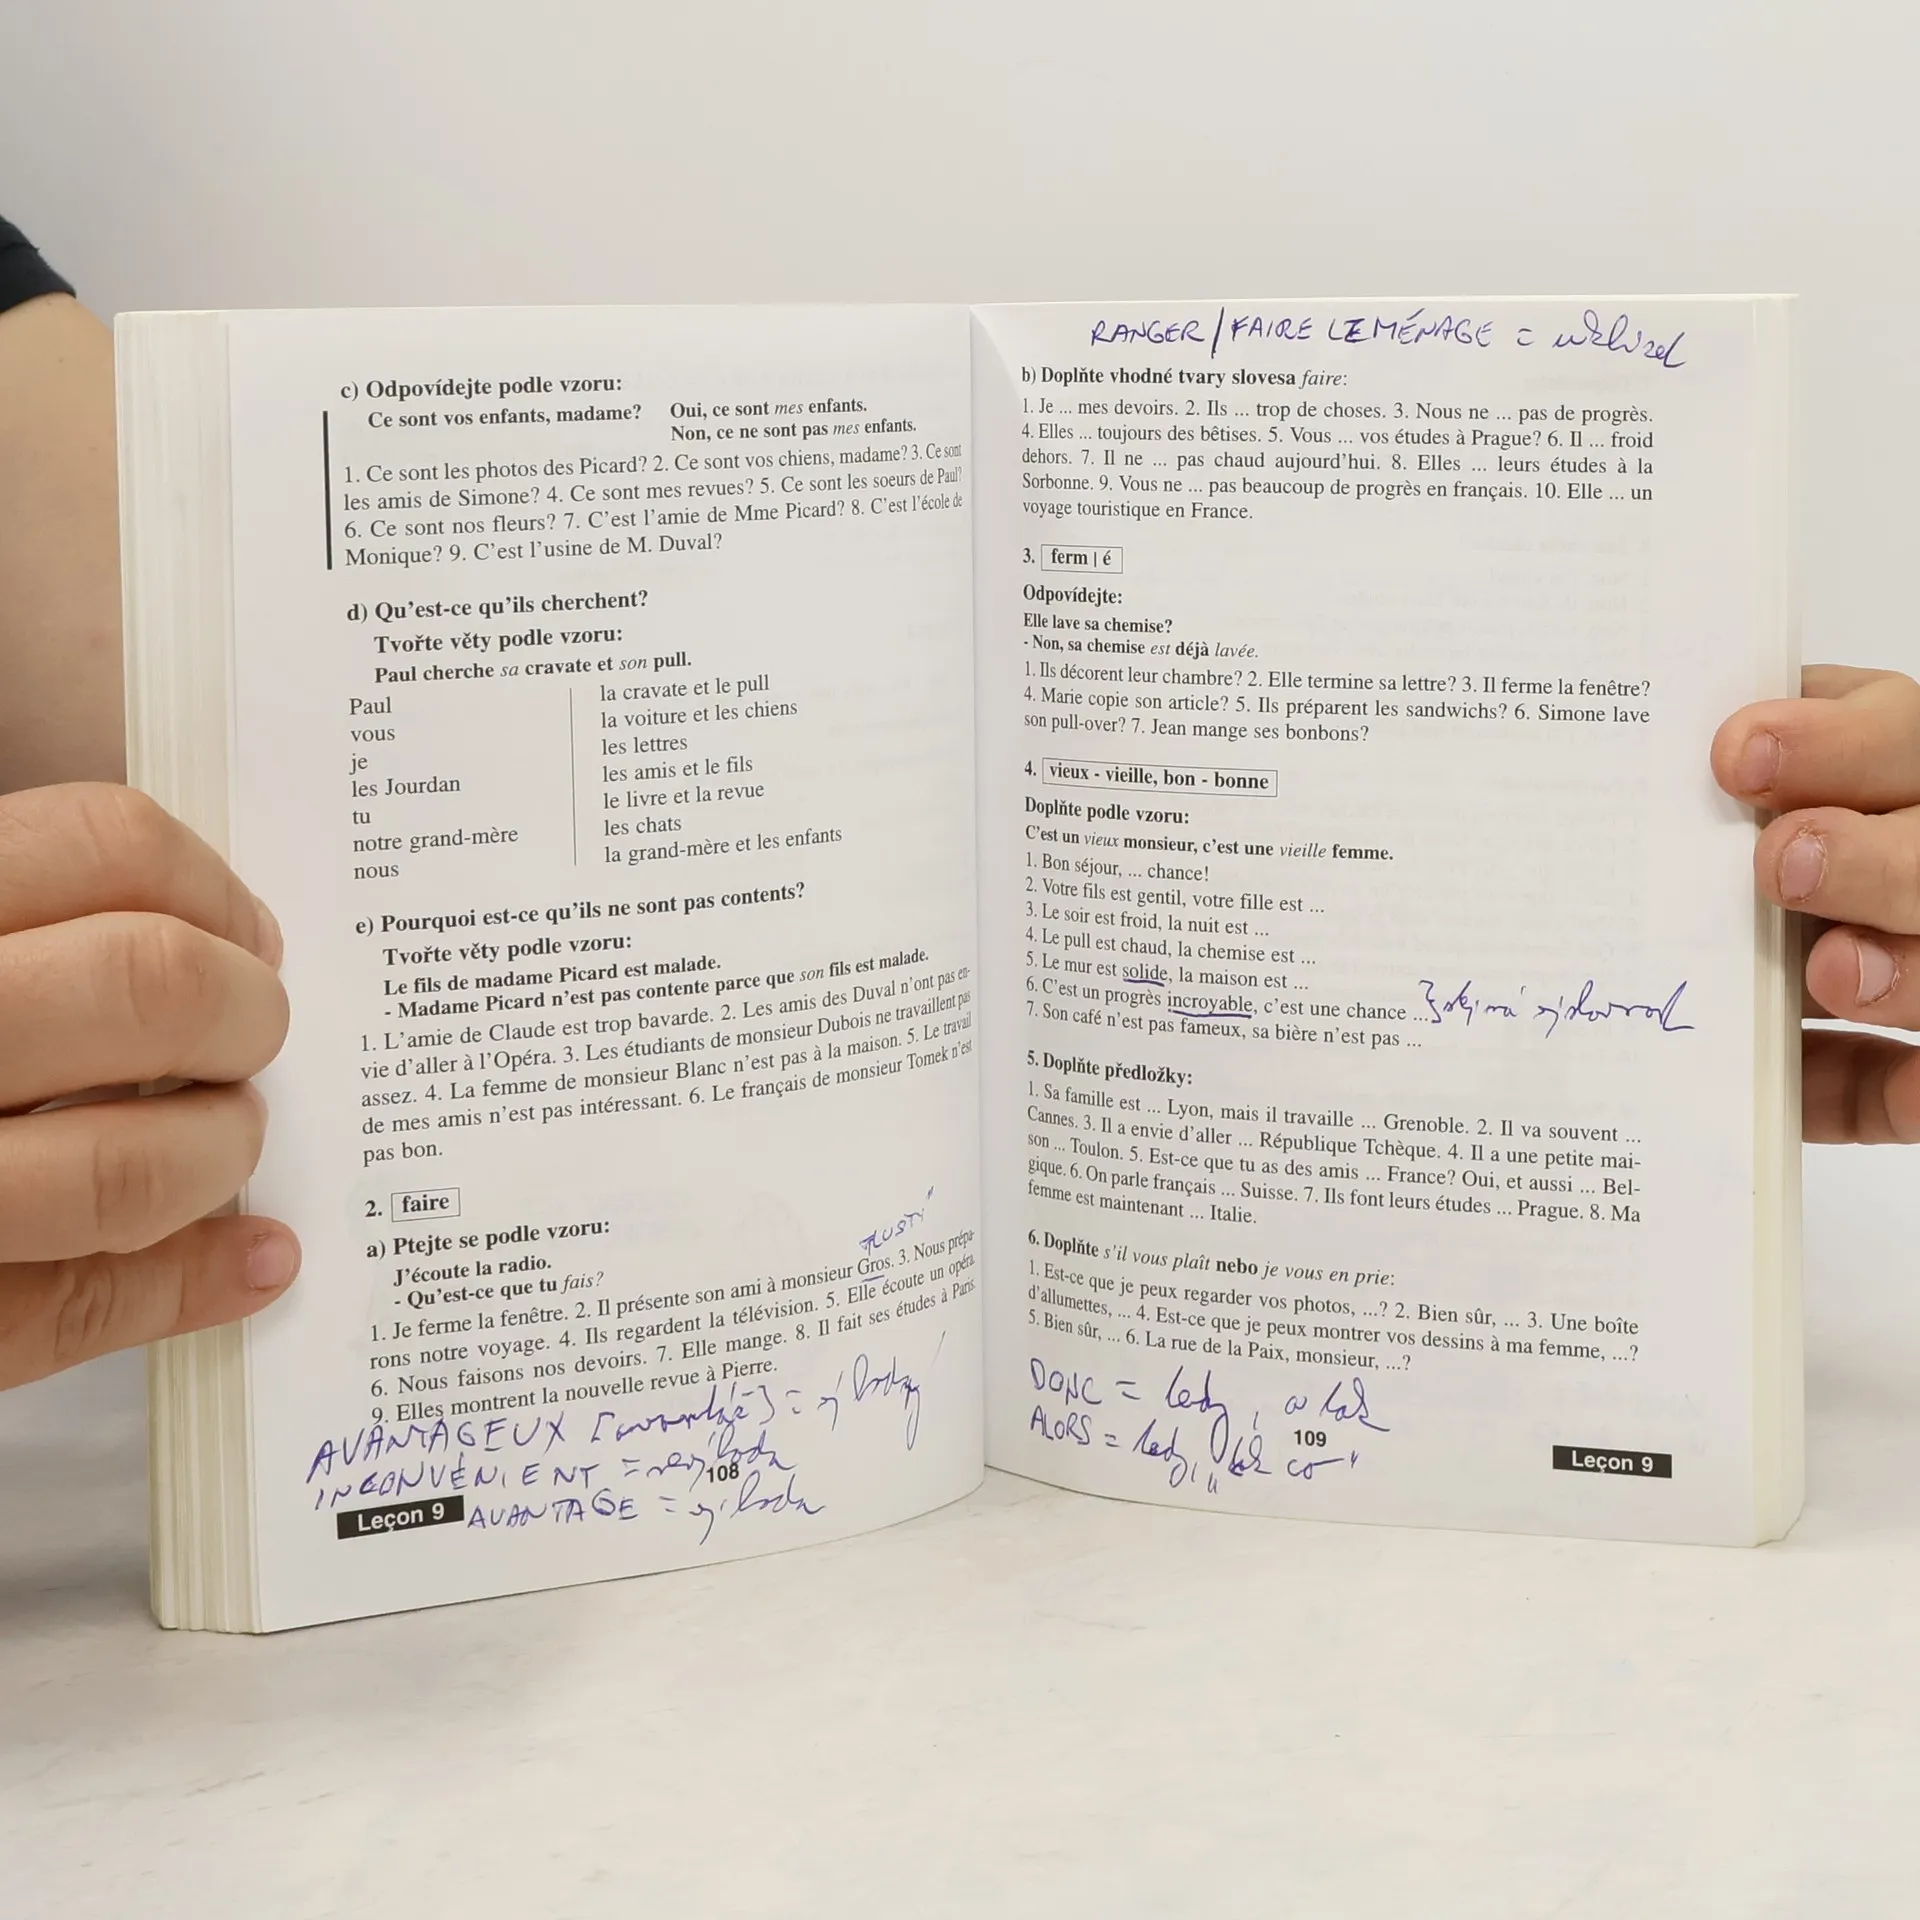 c) Odpovídejte podle vzoru:
Ce sont vos enfants, madame? Oui, ce sont mes enfants.
Non, ce ne sont pas mes enfants.
1. Ce sont les photos des Picard? 2. Ce sont vos chiens, madame? 3. Ce sont
les amis de Simone? 4. Ce sont mes revues? 5. Ce sont les soeurs de Paul?
6. Ce sont nos fleurs? 7. C'est l'amie de Mme Picard? 8. C'est l'école de
Monique? 9. C'est l'usine de M. Duval?
d) Qu'est-ce qu'ils cherchent?
Tvořte věty podle vzoru:
Paul cherche sa cravate et son pull.
Paul la cravate et le pull
vous la voiture et les chiens
je les lettres
les Jourdan les amis et le fils
tu le livre et la revue
notre grand-mère les chats
nous la grand-mère et les enfants
e) Pourquoi est-ce qu'ils ne sont pas contents?
Tvořte věty podle vzoru:
Le fils de madame Picard est malade.
- Madame Picard n'est pas contente parce que son fils est malade.
1. L'amie de Claude est trop bavarde. 2. Les amis des Duval n'ont pas en-
vie d'aller à l'Opéra. 3. Les étudiants de monsieur Dubois ne travaillent pas
assez. 4. La femme de monsieur Blanc n'est pas à la maison. 5. Le travail
de mes amis n'est pas intéressant. 6. Le français de monsieur Tomek n'est
pas bon.
2. faire
a) Ptejte se podle vzoru:
J'écoute la radio.
- Qu'est-ce que tu fais?
TLUSTÝ"
1. Je ferme la fenêtre. 2. Il présente son ami à monsieur Gros. 3. Nous prépa-
rons notre voyage. 4. Ils regardent la télévision. 5. Elle écoute un opéra.
6. Nous faisons nos devoirs. 7. Elle mange. 8. Il fait ses études à Paris.
9. Elles montrent la nouvelle revue à Pierre.
AVANTAGEUX =
INCONVÉNIENT = nevýhoda
108
Leçon 9 AVANTAGE = výhoda
RANGER / FAIRE LE MÉNAGE =
b) Doplňte vhodné tvary slovesa faire:
1. Je ... mes devoirs. 2. Ils ... trop de choses. 3. Nous ne ... pas de progrès.
4. Elles ... toujours des bêtises. 5. Vous ... vos études à Prague? 6. Il ... froid
dehors. 7. Il ne ... pas chaud aujourd'hui. 8. Elles ... leurs études à la
Sorbonne. 9. Vous ne ... pas beaucoup de progrès en français. 10. Elle ... un
voyage touristique en France.
3. ferm | é
Odpovídejte:
Elle lave sa chemise?
- Non, sa chemise est déjà lavée.
1. Ils décorent leur chambre? 2. Elle termine sa lettre? 3. Il ferme la fenêtre?
4. Marie copie son article? 5. Ils préparent les sandwichs? 6. Simone lave
son pull-over? 7. Jean mange ses bonbons?
4. vieux - vieille, bon - bonne
Doplňte podle vzoru:
C'est un vieux monsieur, c'est une vieille femme.
1. Bon séjour, ... chance!
2. Votre fils est gentil, votre fille est ...
3. Le soir est froid, la nuit est ...
4. Le pull est chaud, la chemise est ...
5. Le mur est solide, la maison est ...
6. C'est un progrès incroyable, c'est une chance ...
7. Son café n'est pas fameux, sa bière n'est pas ...
5. Doplňte předložky:
1. Sa famille est ... Lyon, mais il travaille ... Grenoble. 2. Il va souvent ...
Cannes. 3. Il a envie d'aller ... République Tchèque. 4. Il a une petite mai-
son ... Toulon. 5. Est-ce que tu as des amis ... France? Oui, et aussi ... Bel-
gique. 6. On parle français ... Suisse. 7. Ils font leurs études ... Prague. 8. Ma
femme est maintenant ... Italie.
6. Doplňte s'il vous plaît nebo je vous en prie:
1. Est-ce que je peux regarder vos photos, ...? 2. Bien sûr, ... 3. Une boîte
d'allumettes, ... 4. Est-ce que je peux montrer vos dessins à ma femme, ...?
5. Bien sûr, ... 6. La rue de la Paix, monsieur, ...?
DONC = tedy, a tak
ALORS = tedy,
109
Leçon 9